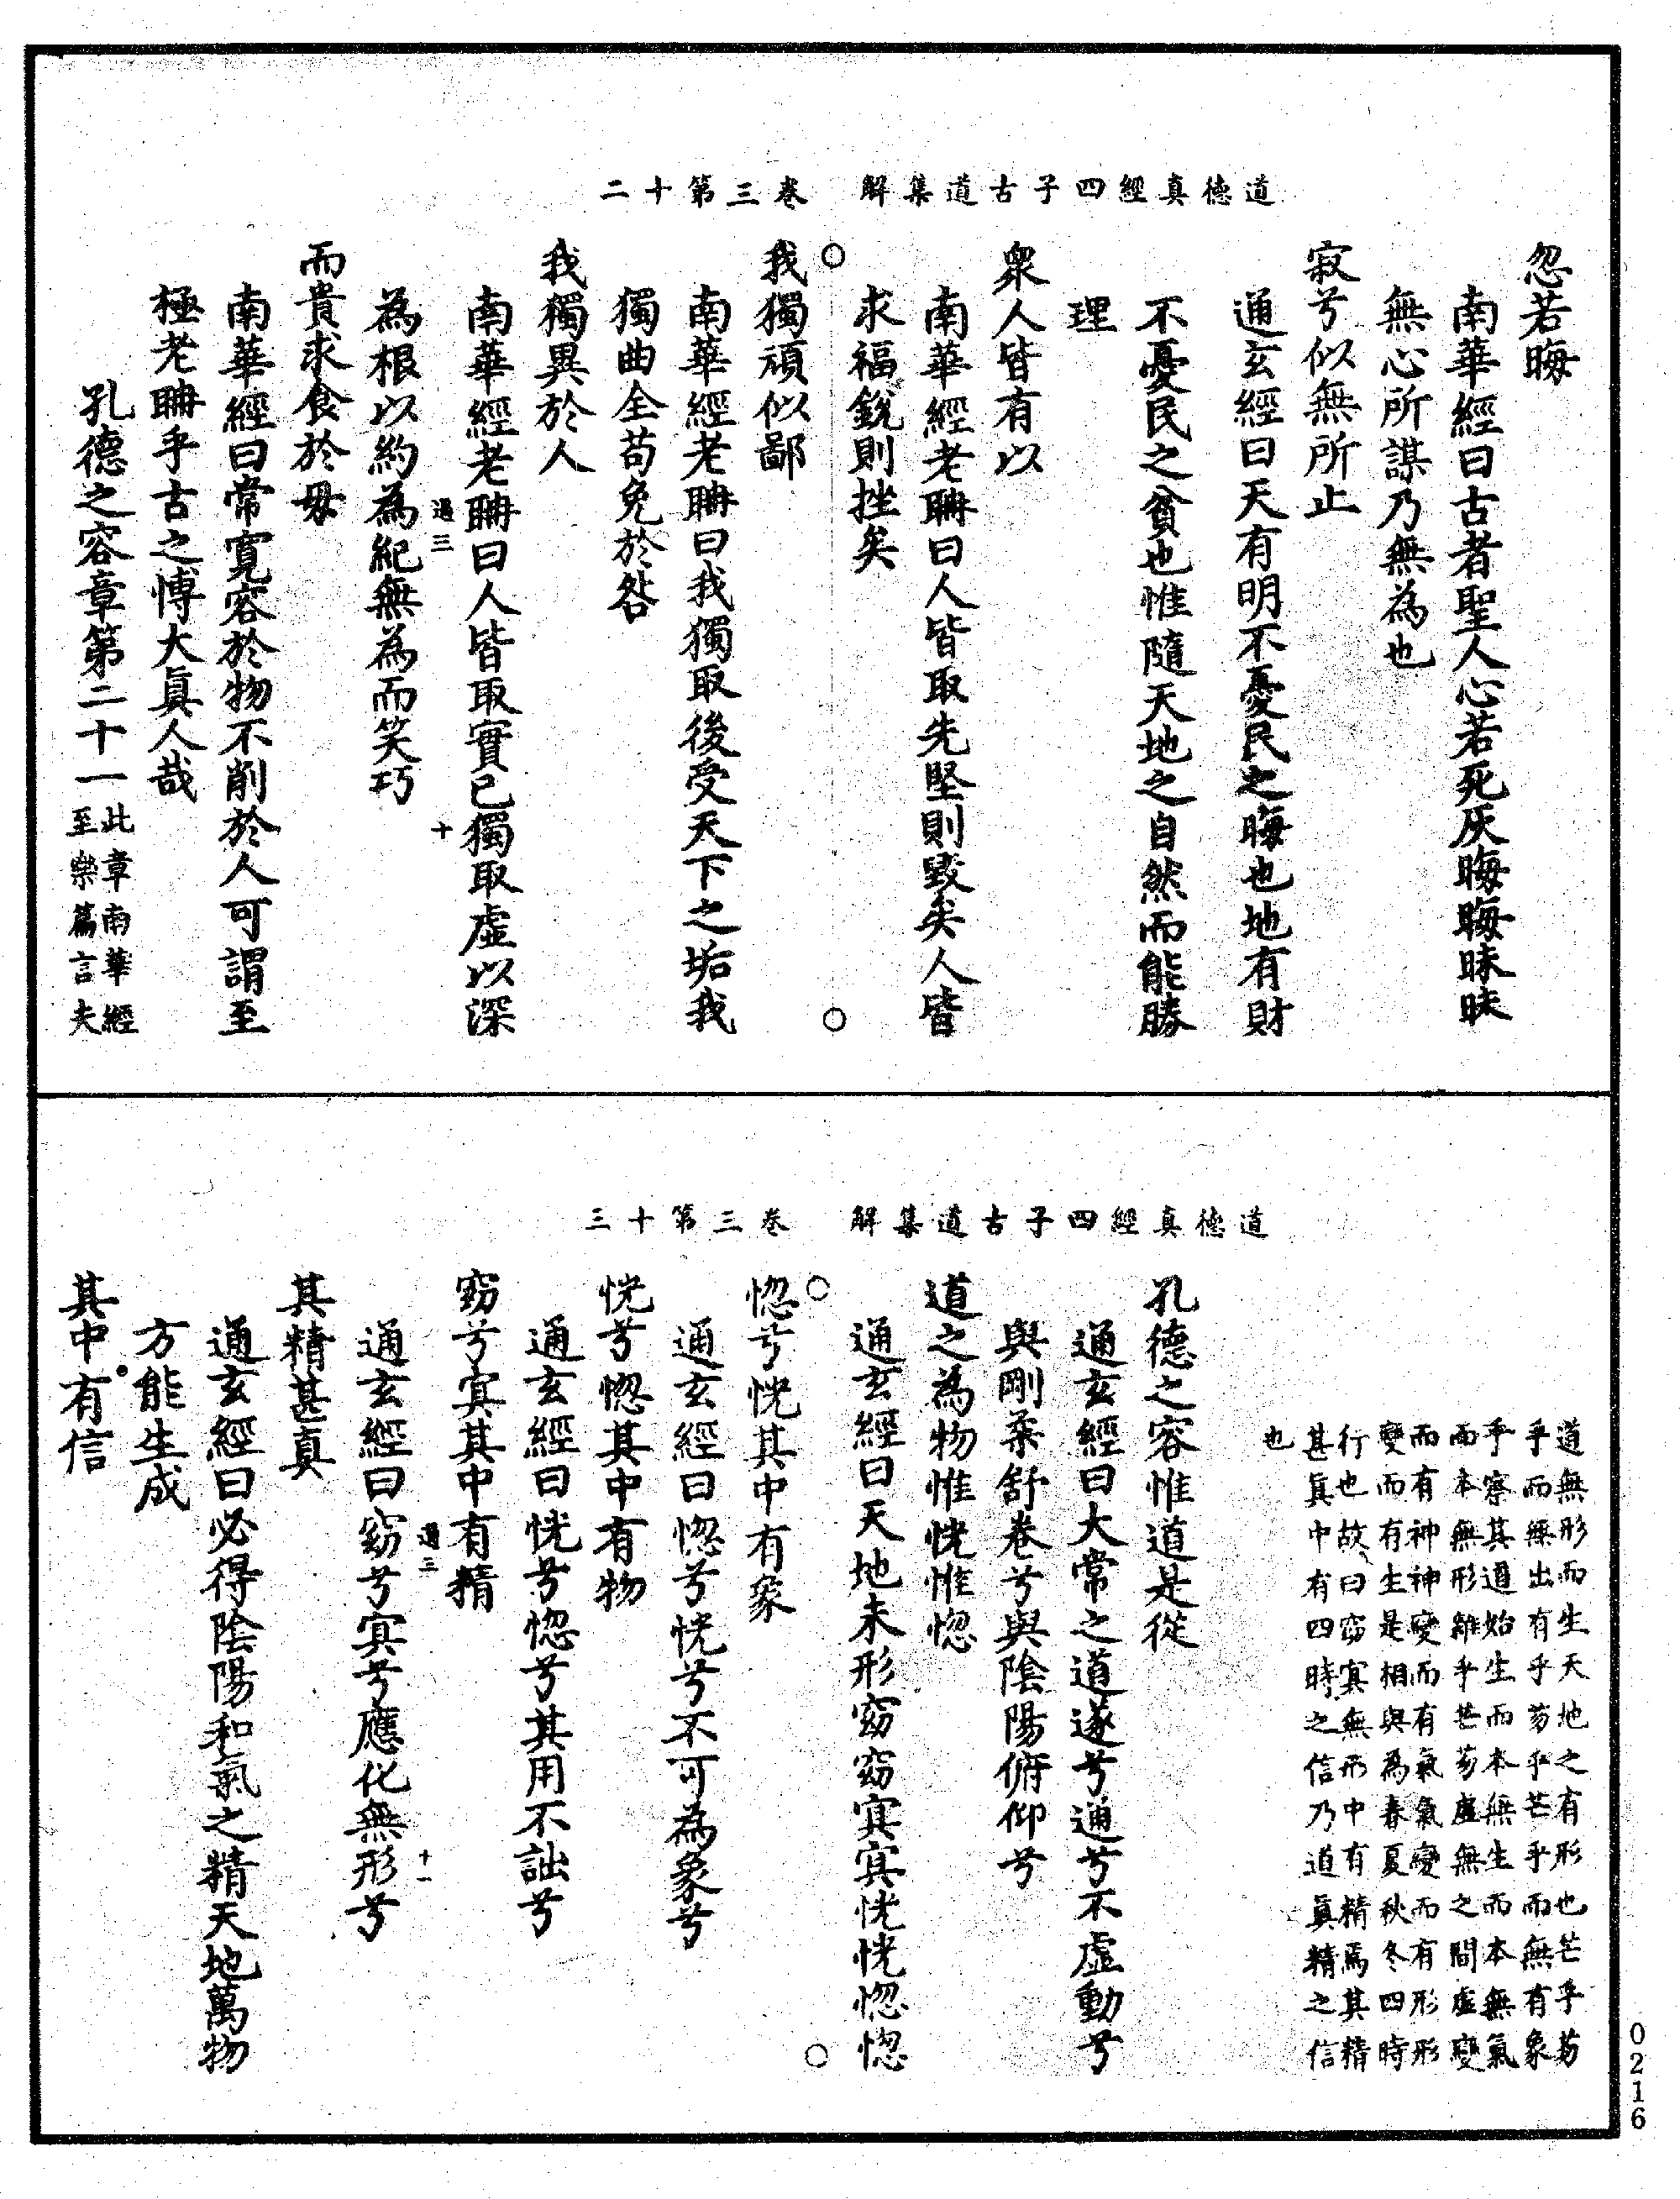 道德真經四子古道集解　卷三第十二
忽若晦
南華經曰古者聖人心若死灰晦晦昧昧
無心所謀乃無為也
寂兮似無所止
通玄經曰天有明不憂民之晦也地有財
不憂民之貧也惟隨天地之自然而能勝
理
衆人皆有以
南華經老聃曰人皆取先堅則毀矣人皆
求福銳則挫矣
我獨頑似鄙
南華經老聃曰我獨取後受天下之垢我
獨曲全苟免於咎
我獨異於人
南華經老聃曰人皆取實已獨取虛以深
過三　十
為根以約為紀無為而笑巧
而貴求食於母
南華經曰常寬容於物不削於人可謂至
極老聃乎古之博大真人哉
孔德之容章第二十一此章南華經
至樂篇言夫
道德真經四子古道集解　卷三第十三
道無形而生天地之有形也芒乎芴
乎而繇出有乎芴乎芒乎而無有象
乎察其道始生而本無生而本無氣
而本無形雜乎芒芴虛無之間虛變
而有神神變而有氣氣變而有形形
變而有生是相與為春夏秋冬四時
行也故曰窈冥無形中有精焉其精
甚真中有四時之信乃道真精之信
也
孔德之容惟道是從
通玄經曰大常之道遂兮通兮不虛動兮
與剛柔舒卷兮與陰陽俯仰兮
道之為物惟恍惟惚
通玄經曰天地未形窈窈冥冥恍恍惚惚
惚兮恍其中有象
通玄經曰惚兮恍兮不可為象兮
恍兮惚其中有物
通玄經曰恍兮惚兮其用不詘兮
窈兮冥其中有精
過三　十一
通玄經曰窈兮冥兮應化無形兮
其精甚真
通玄經曰必得陰陽和氣之精天地萬物
方能生成
其中有信
0216